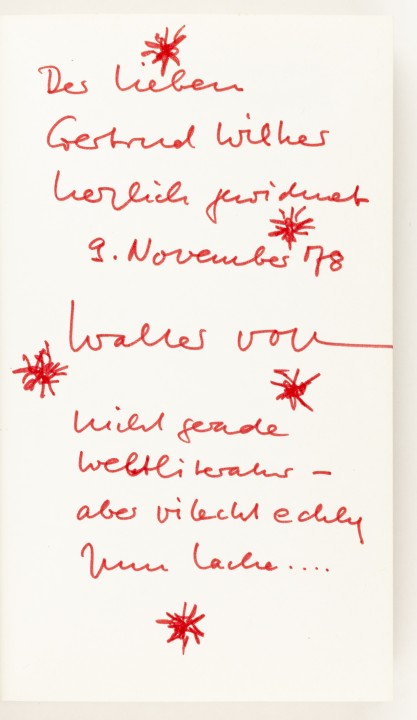 Der lieben
Gertrud Wilker
herzlich gewidmet
9. November 78
Walter Voll
nicht gerade
Weltliteratur –
aber vilecht echly
zum lache....